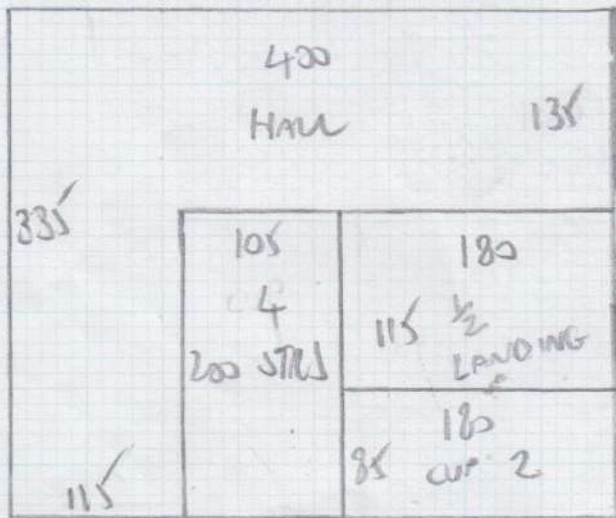 400
HALL
135
335
105
4
200 STRS
180
115 ½
LANDING
180
85 CUP 2
115